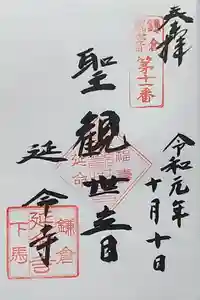 奉拝
鎌倉
第十一番
令和元年
十月十日
聖観世音
延命寺
鎌倉
下馬